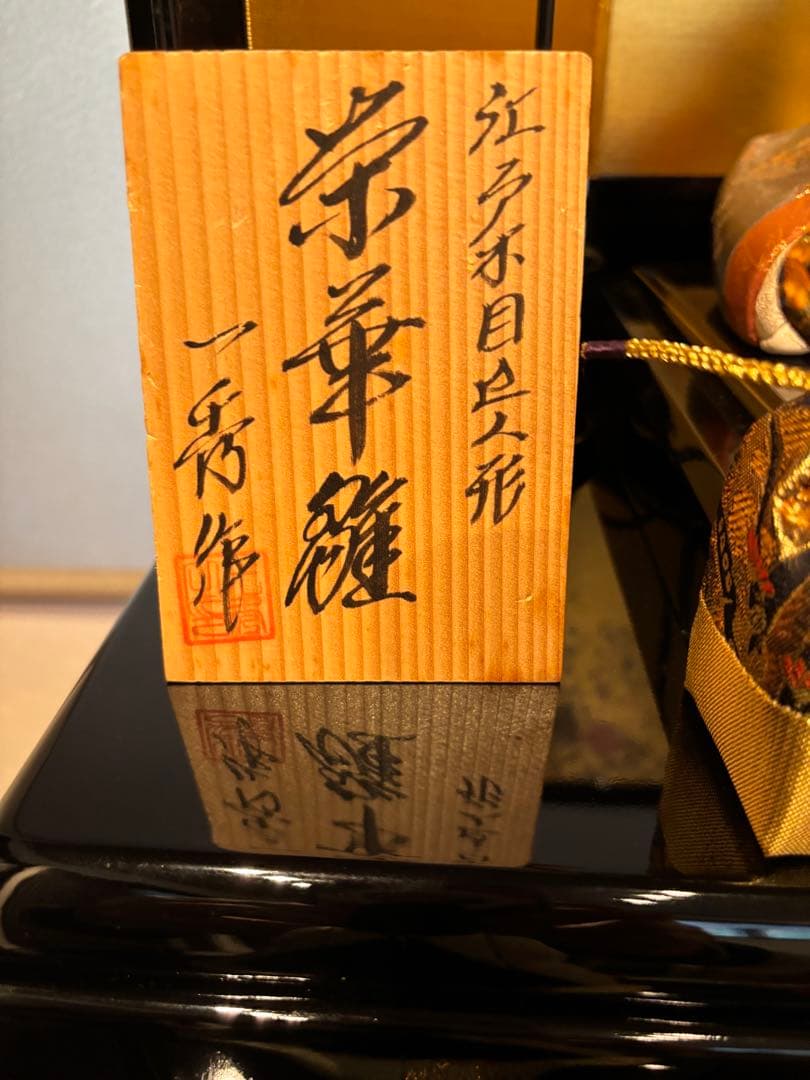 江戸木目込人形
栄華雛
一秀作